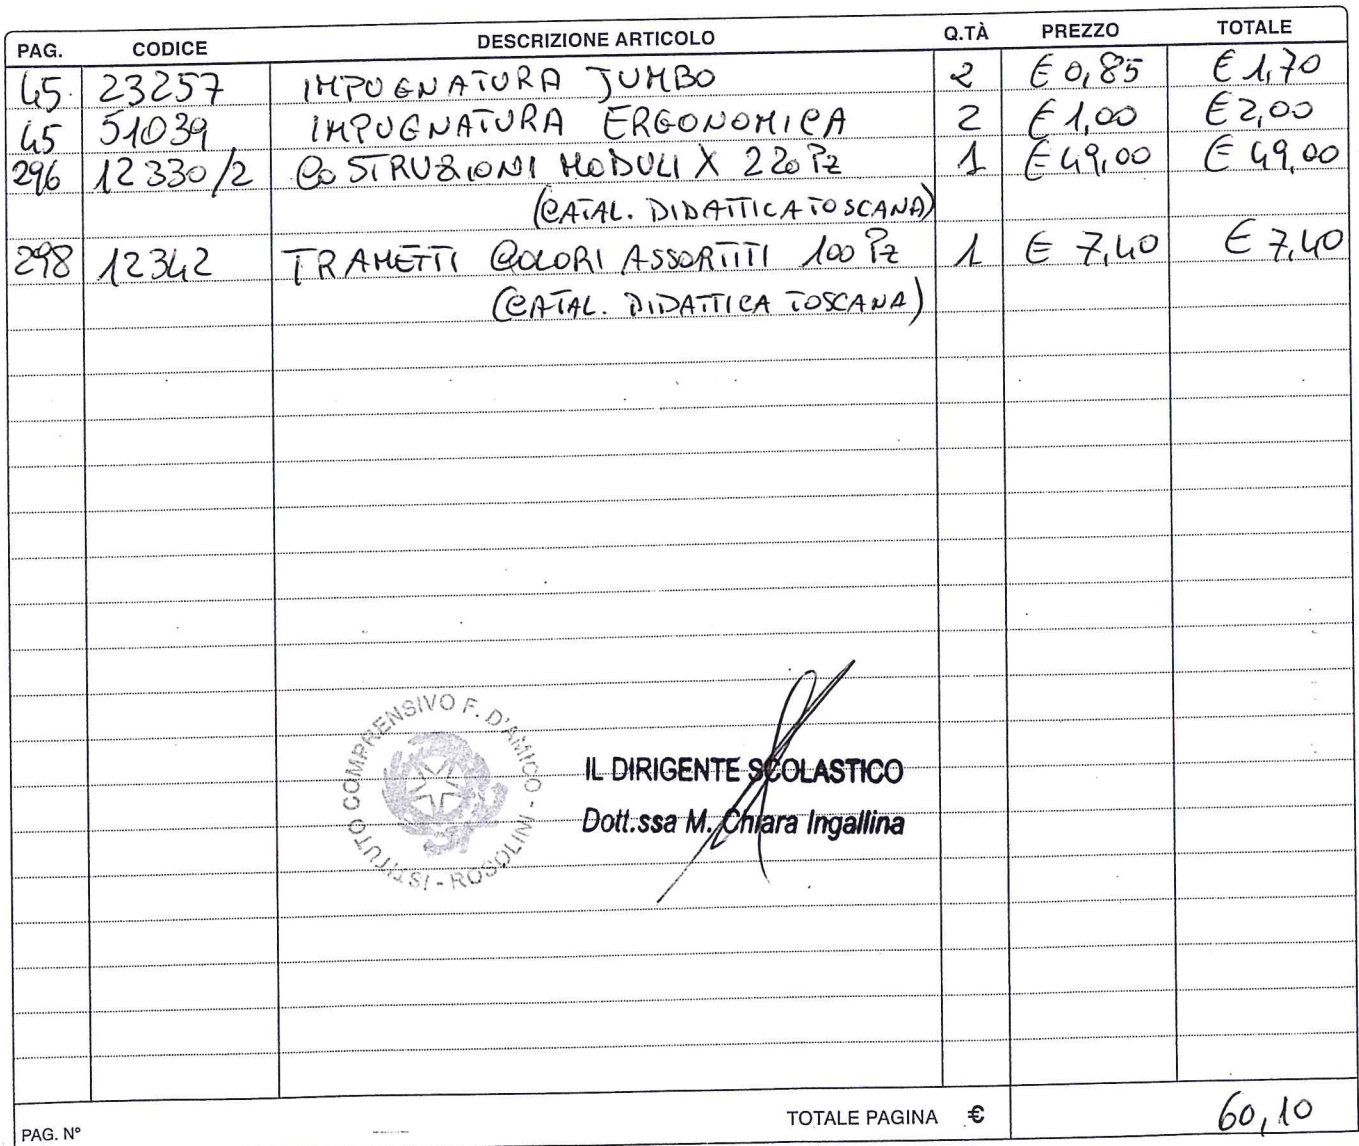 PAG. CODICE DESCRIZIONE ARTICOLO Q.TÀ PREZZO TOTALE
45 23257 IMPUGNATURA JUMBO 2 € 0,85 € 1,70
45 51039 IMPUGNATURA ERGONOMICA 2 € 1,00 € 2,00
296 12330/2 COSTRUZIONI MODULI X 220 Pz 1 € 49,00 € 49,00
(CATAL. DIDATTICA TOSCANA)
298 12342 TRAMETTI COLORI ASSORTITI 100 Pz 1 € 7,40 € 7,40
(CATAL. DIDATTICA TOSCANA)
ISTITUTO COMPRENSIVO F. D'AMICO - ROSOLINI -
IL DIRIGENTE SCOLASTICO
Dott.ssa M. Chiara Ingallina
TOTALE PAGINA € 60,10
PAG. N°